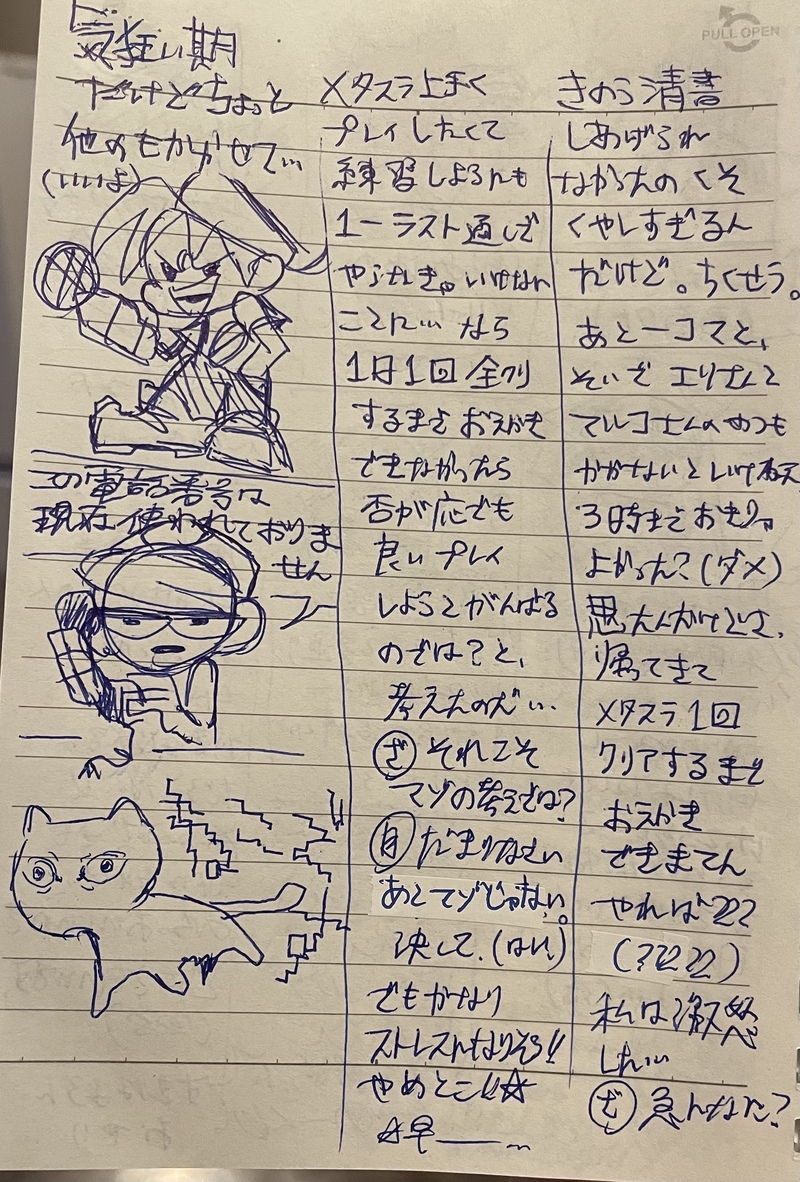 PULL OPEN
気狂い期
だけどちょっと
他のもかかせて…
(いいよ)
この電話番号は
現在使われておりま
せん
フー
メタスラ上まく
プレイしたくて
練習しようにも
1−ラスト通しで
やらなきゃいけない
ことに… なら
1日1回全クリ
するまでおえかき
できなかったら
否が応でも
良いプレイ
しようとがんばる
のでは?と、
考えたのだい..
ざ それこそ
マゾの考えでは?
自 だまりなさい
あとマゾじゃない。
決して.(はい)
でもかなり
ストレスになりそう!!
やめとこ!!☆
☆早――~
きのう清書
しあげられ
なかったの くそ
くやしすぎるん
だけど。ちくせう。
あと一コマと、
そいで エリさんと
マルコさんのやつも
かかないといけ
3時まで おきりゃ
よかった?(ダメ)
思たんだけどさ、
帰ってきて
メタスラ1回
クリアするまで
おえかき
できまてん
やれば
私は激怒
した…
ざ 急になに?